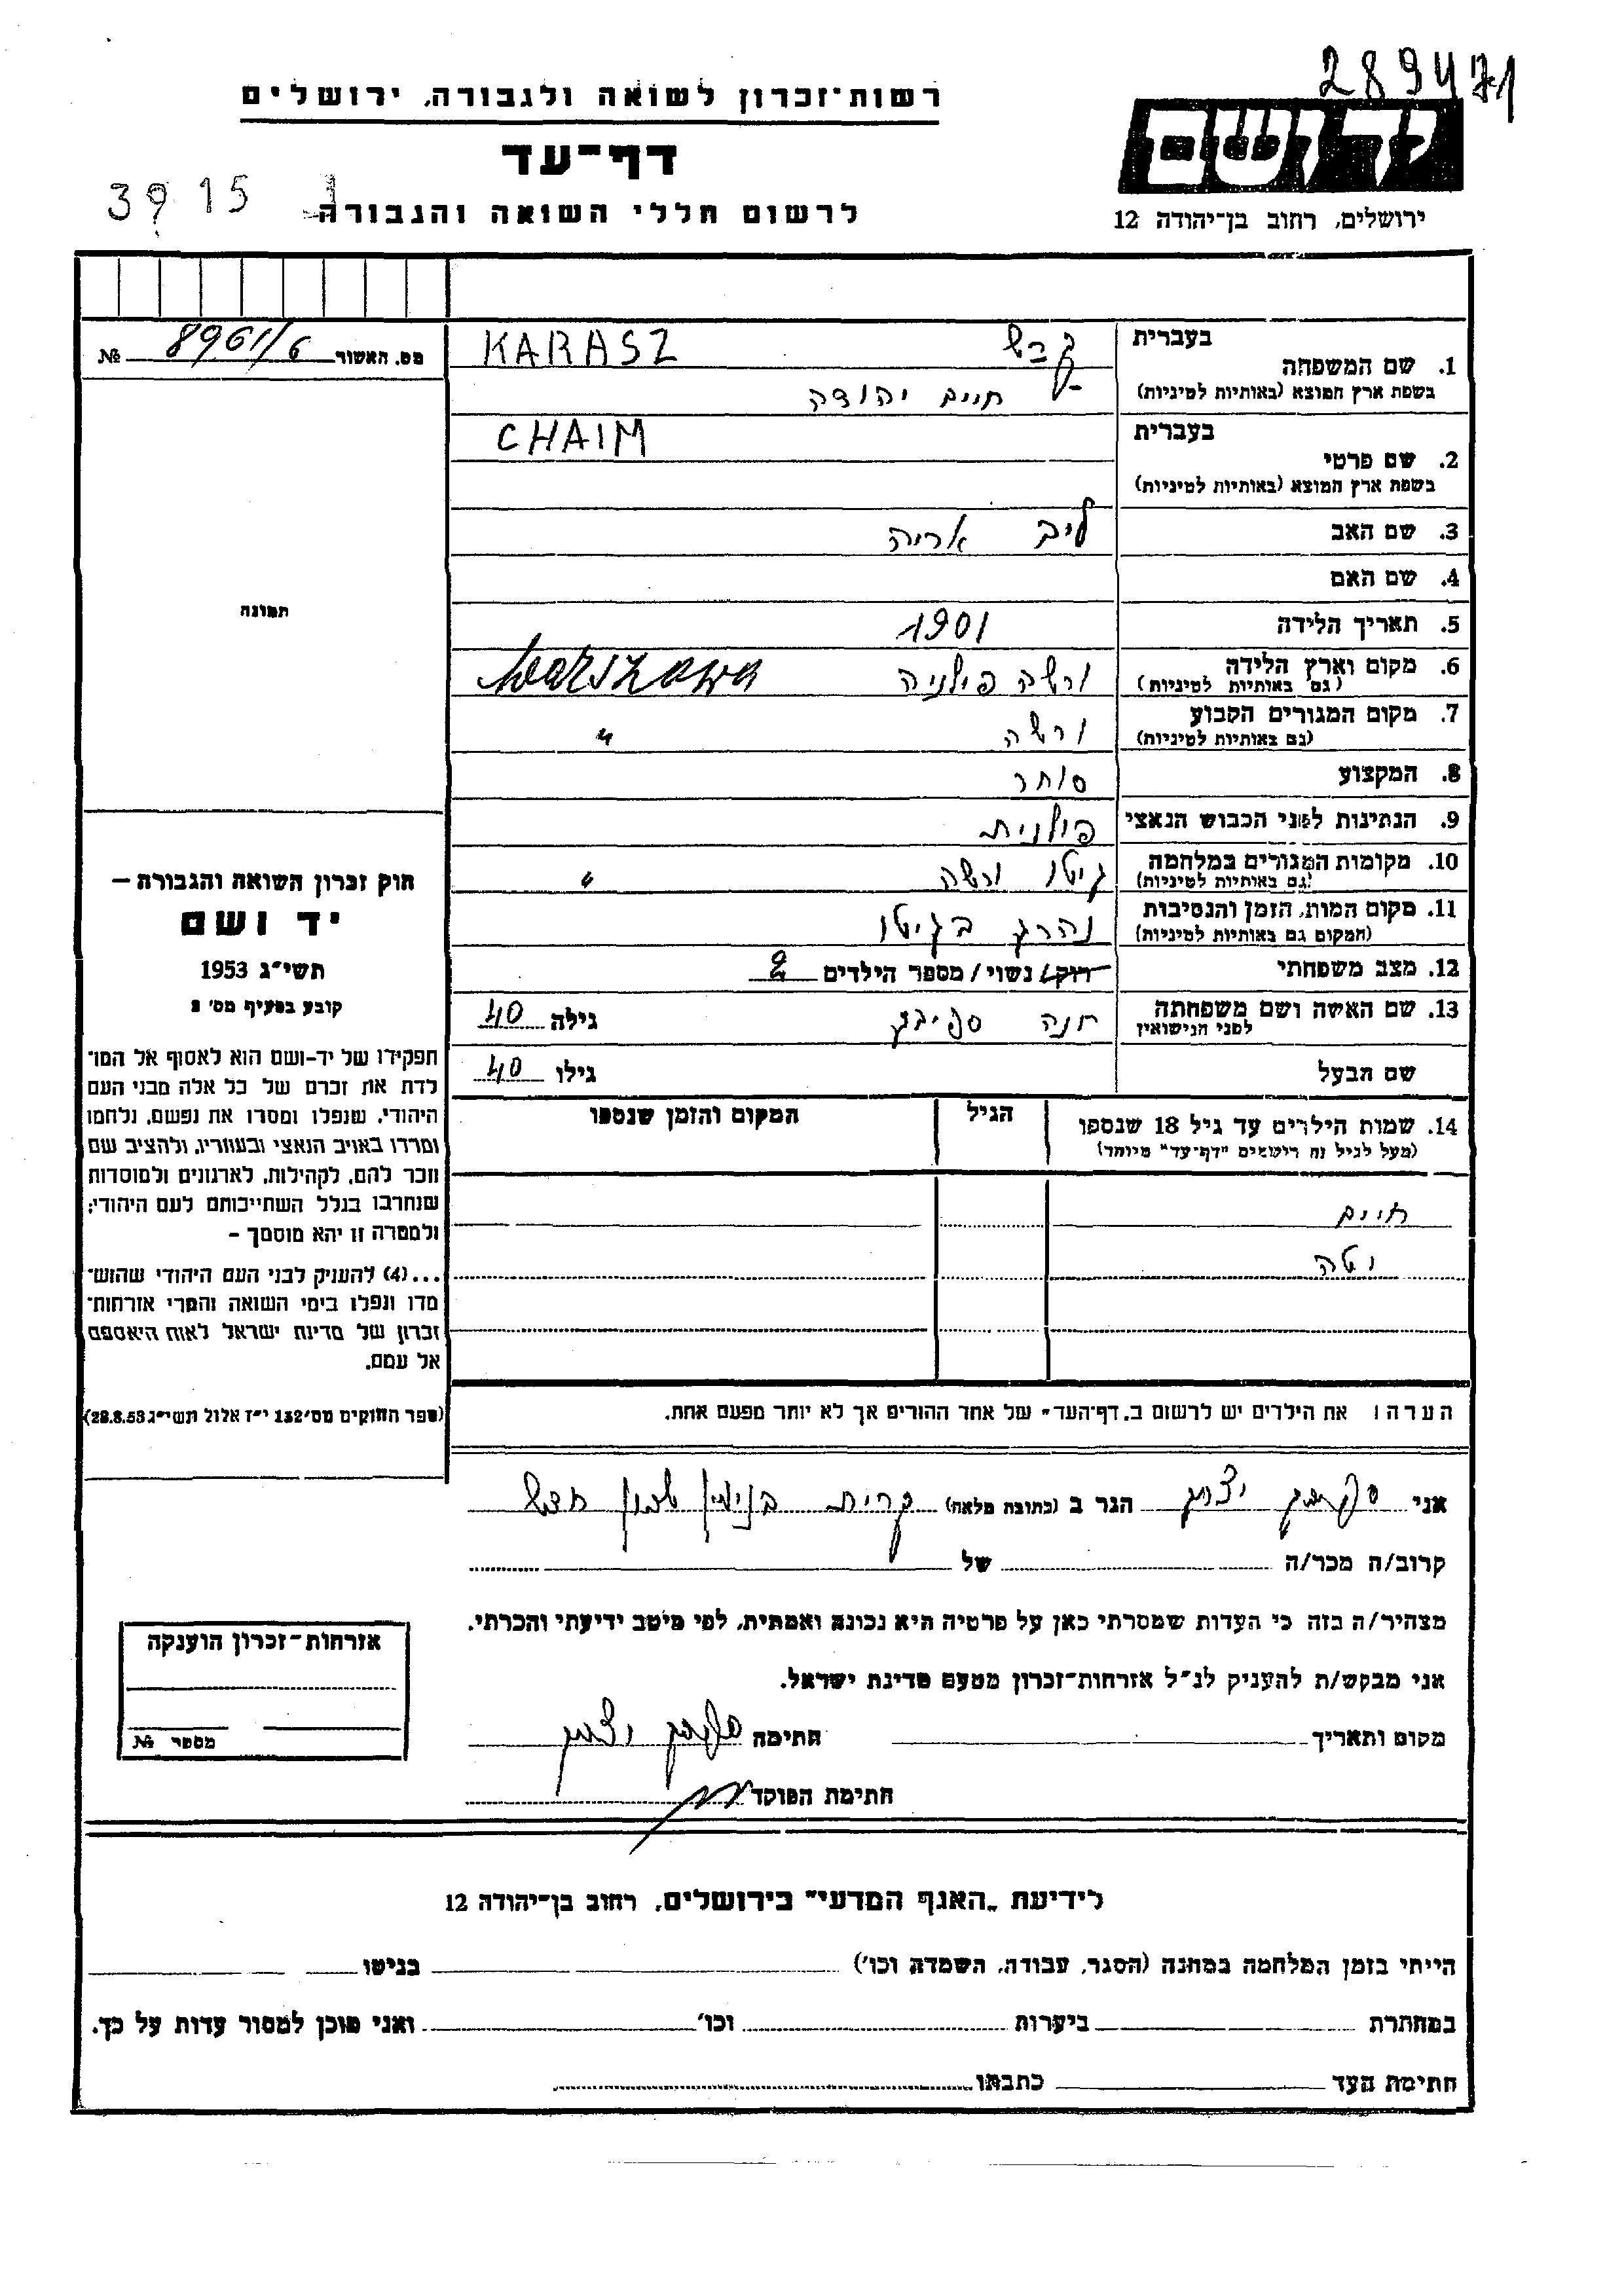 289471
רשות־זכרון לשואה ולגבורה, ירושלים
יד ושם
דף־עד
3915
לרשום חללי השואה והגבורה
ירושלים, רחוב בן־יהודה 12
מס. האשור 8961/6 №
בעברית
1. שם המשפחה קרש KARASZ
בשפת ארץ המוצא (באותיות לטיניות) חיים יהודה
בעברית CHAIM
2. שם פרטי
בשפת ארץ המוצא (באותיות לטיניות)
3. שם האב ליב אריה
4. שם האם
5. תאריך הלידה 1901
6. מקום וארץ הלידה ורשה פולניה Warszawa
(גם באותיות לטיניות)
7. מקום המגורים הקבוע ורשה "
(גם באותיות לטיניות)
8. המקצוע סוחר
9. הנתינות לפני הכבוש הנאצי פולנית
10. מקומות המגורים במלחמה גיטו ורשה "
(גם באותיות לטיניות)
11. מקום המות, הזמן והנסיבות נהרג בגיטו
(המקום גם באותיות לטיניות)
12. מצב משפחתי רווק/ נשוי/ מספר הילדים 2
13. שם האשה ושם משפחתה חנה גילה 40
לפני הנישואין
שם הבעל גילו 40
14. שמות הילדים עד גיל 18 שנספו הגיל המקום והזמן שנספו
(מעל לגיל זה רישומים "דף־עד" מיוחד)
חיים
יטה
הערה: את הילדים יש לרשום ב„דף־העד" של אחד ההורים אך לא יותר מפעם אחת.
תמונה
חוק זכרון השואה והגבורה –
יד ושם
תשי״ג 1953
קובע בסעיף מס׳ 2
תפקידו של יד-ושם הוא לאסוף אל המו־
לדת את זכרם של כל אלה מבני העם
היהודי, שנפלו ומסרו את נפשם, נלחמו
ומרדו באויב הנאצי ובעוזריו, ולהציב שם
וזכר להם, לקהילות, לארגונים ולמוסדות
שנחרבו בגלל השתייכותם לעם היהודי;
ולמטרה זו יהא מוסמך –
...(4) להעניק לבני העם היהודי שהוש־
מדו ונפלו בימי השואה והמרי אזרחות־
זכרון של מדינת ישראל לאות היאספם
אל עמם.
(ספר החוקים מס׳ 132 י״ז אלול תשי״ג 28.8.53)
אני יצחק הגר ב (כתובת מלאה) קרית בנימין שכון חדש
קרוב/ה מכר/ה של
מצהיר/ה בזה כי העדות שמסרתי כאן על פרטיה היא נכונה ואמתית, לפי מיטב ידיעתי והכרתי.
אני מבקש/ת להעניק לנ״ל אזרחות־זכרון מטעם מדינת ישראל.
מקום ותאריך חתימה יצחק
חתימת הפוקד
אזרחות־זכרון הוענקה
מספר №
לידיעת „האגף המדעי" בירושלים, רחוב בן־יהודה 12
הייתי בזמן המלחמה במחנה (הסגר, עבודה, השמדה וכו׳) בגיטו
במחתרת ביערות וכו׳ ואני מוכן למסור עדות על כך.
חתימת העד כתבתו